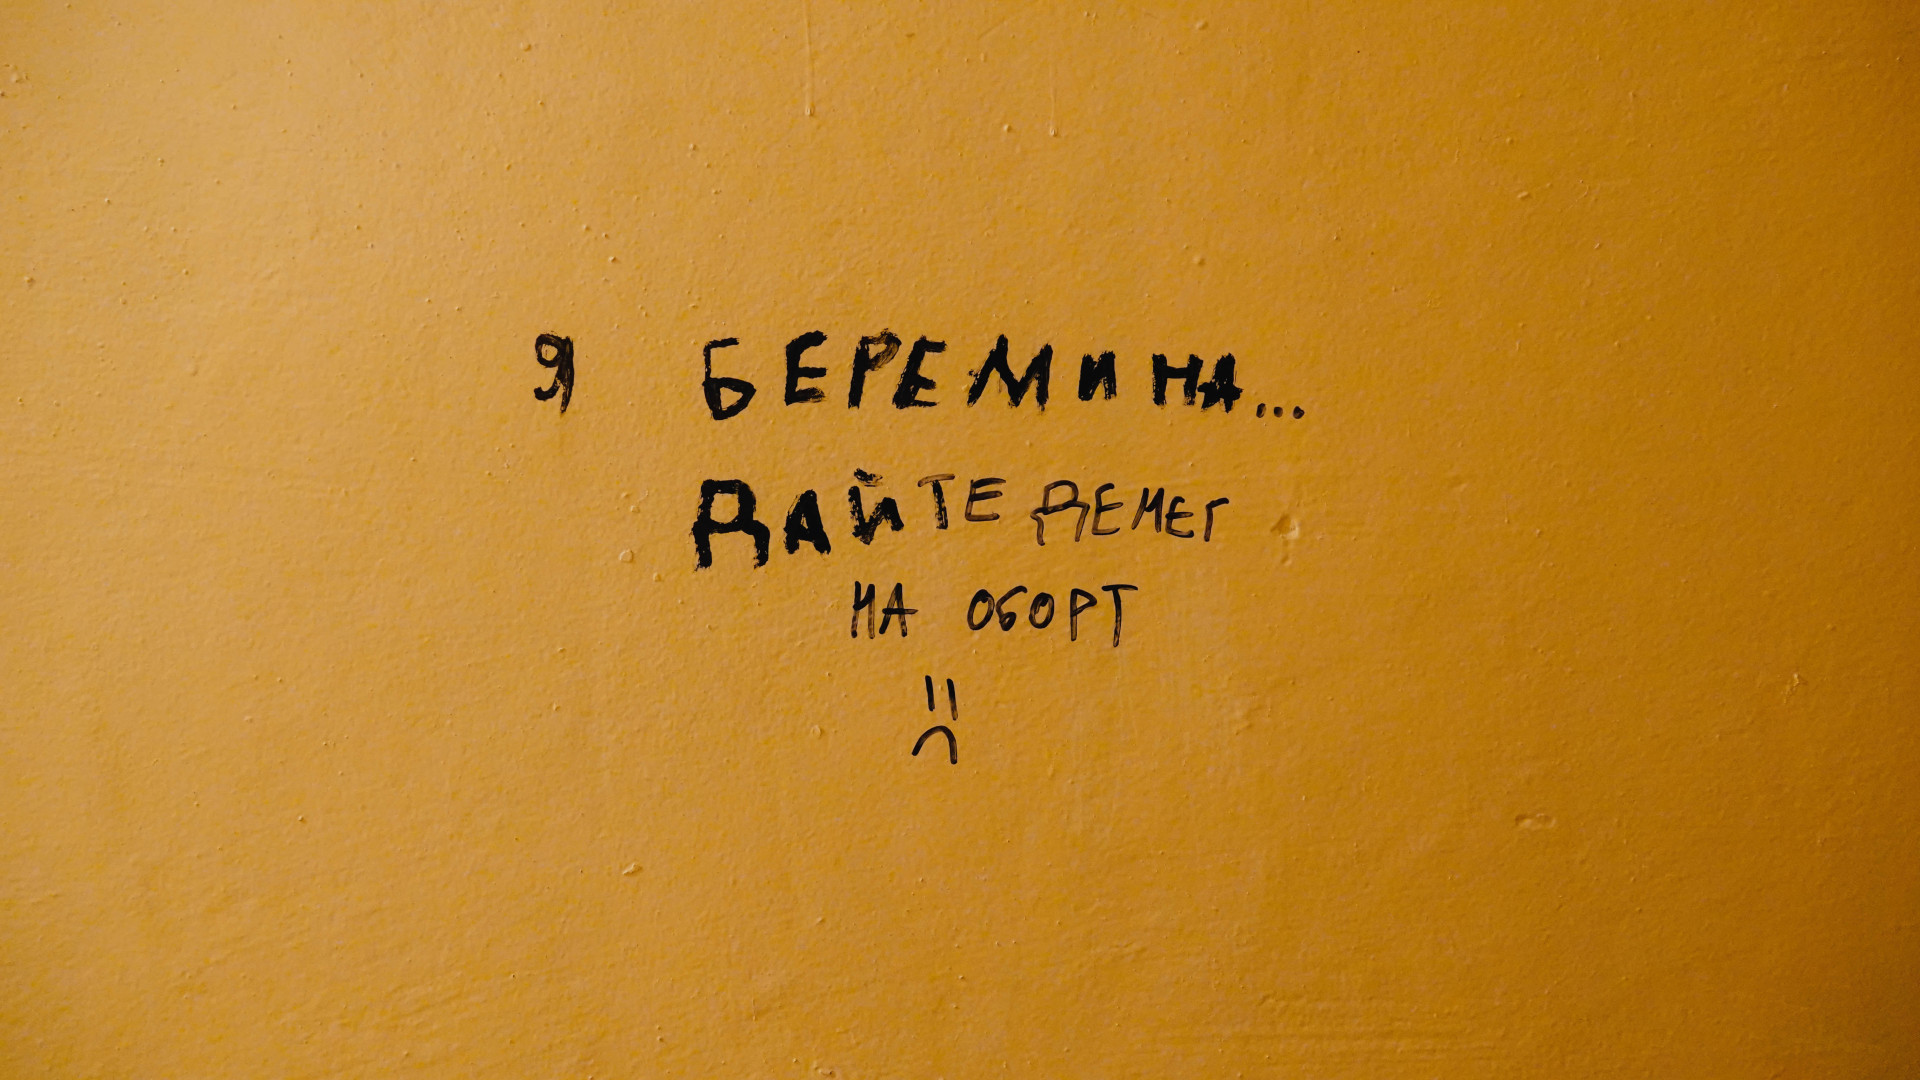 Я БЕРЕМИНА...
ДАЙТЕ ДЕНЕГ
НА ОБОРТ